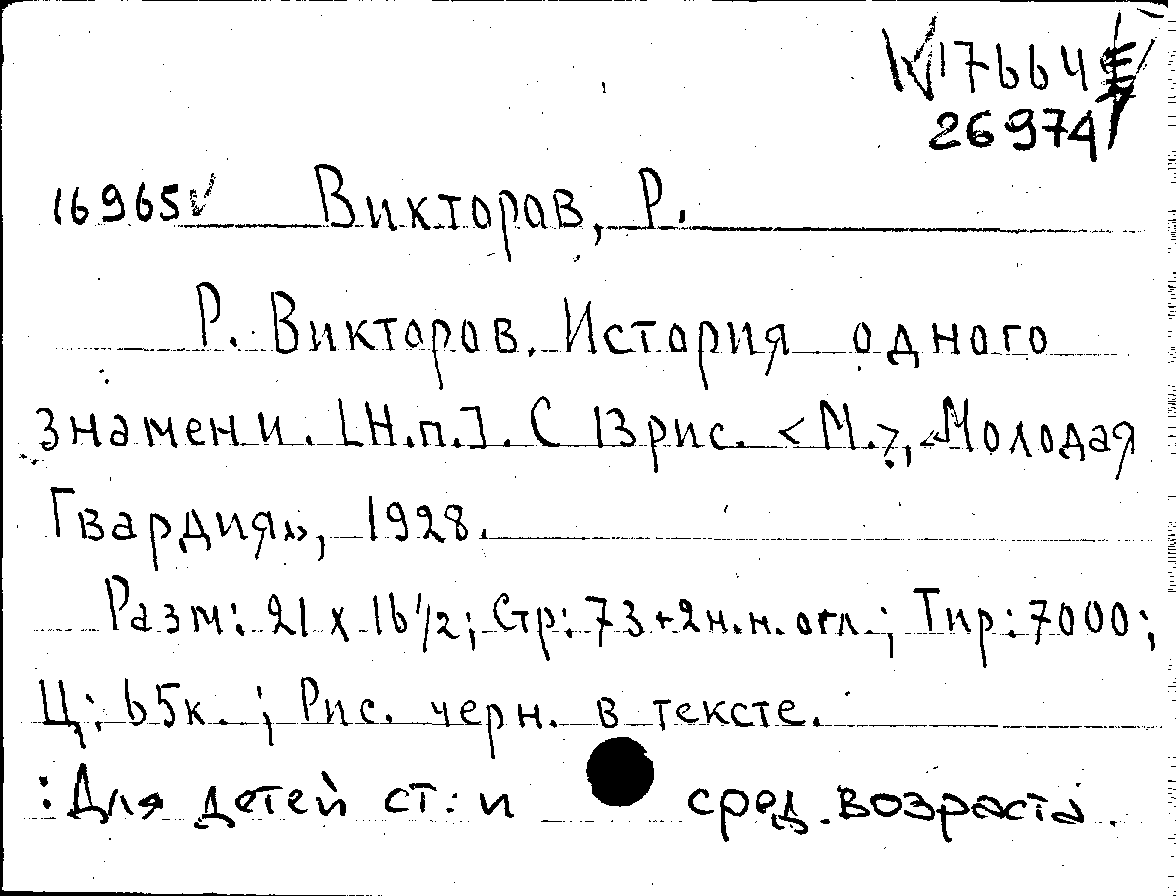 17664
26974
16965 Викторов, Р.
Р. Викторов. История одного
знамени. [Н.п.]. С 13 рис. <М.>, «Молодая
Гвардия», 1928.
Разм: 21 х 16 1/2; Стр: 73+2 н.н. огл.; Тир: 7000;
Ц: 65к.; Рис. черн. в тексте.
: Для детей ст. и сред. возраста.